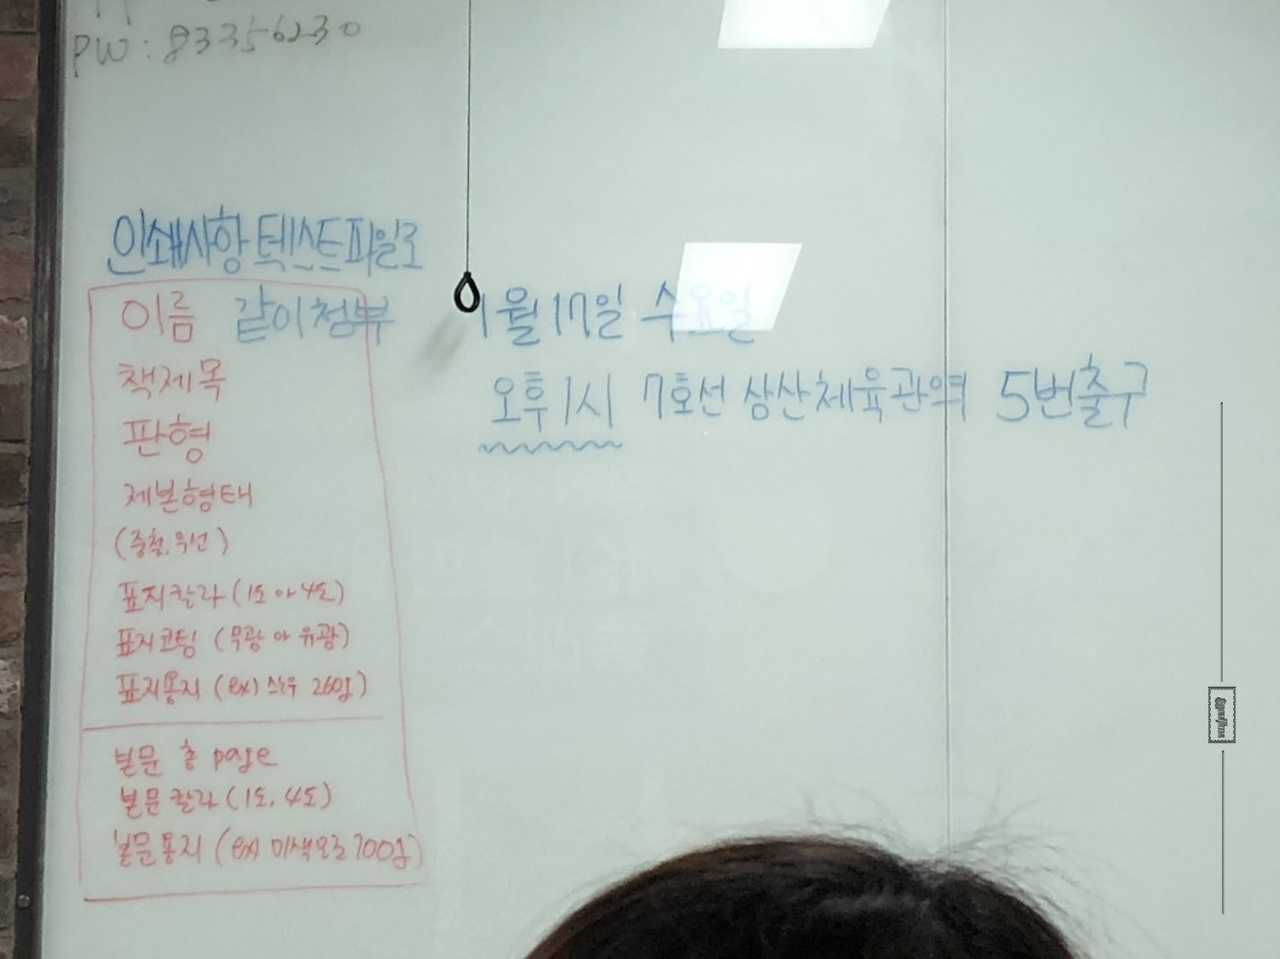 PW : 83356230
인쇄사항 텍스트파일로
이름 같이 첨부
책제목
판형
제본형태
(중철, 무선)
표지칼라 (1도 or 4도)
표지코팅 (무광 or 유광)
표지용지 (ex) 스노우 260g)
본문 총 page
본문칼라 (1도, 4도)
본문용지 (ex) 미색모조 100g)
1월 17일 수요일
오후 1시 7호선 삼산체육관역 5번출구